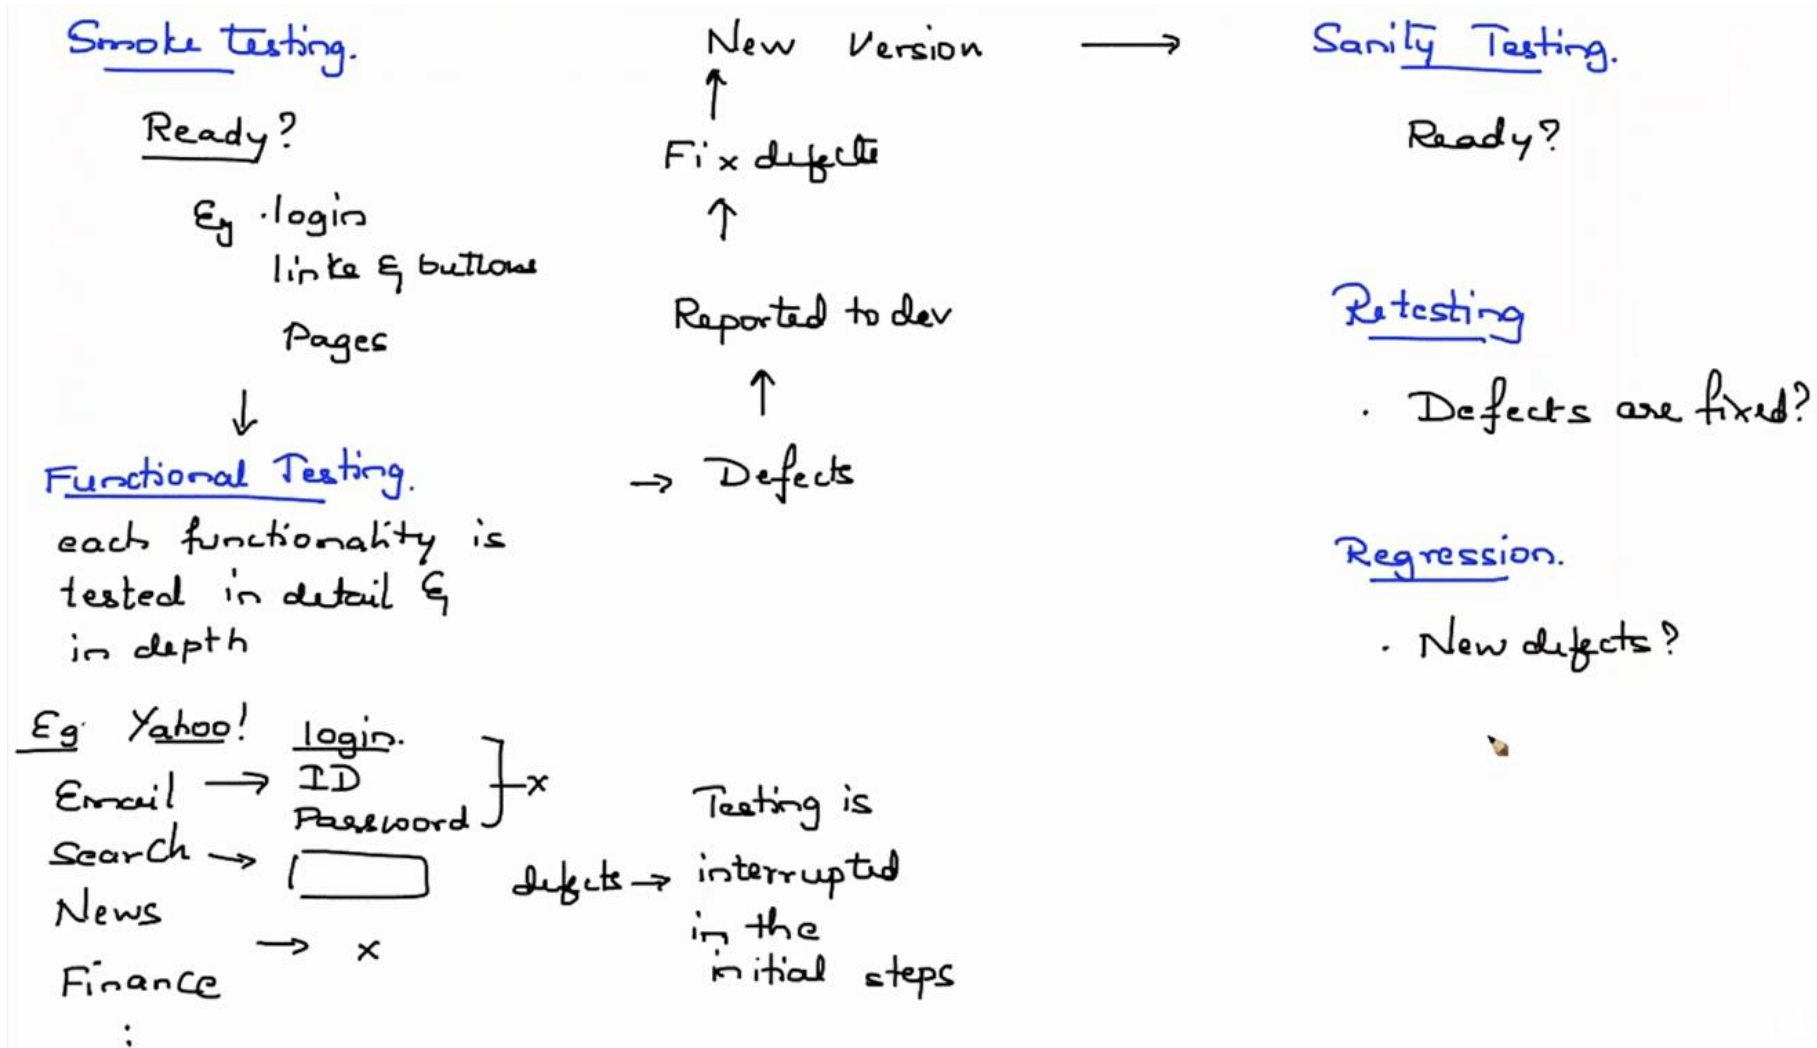 Smoke testing.
Ready?
Eg . login
links & buttons
Pages
↓
Functional Testing.
each functionality is
tested in detail &
in depth
Eg Yahoo! login.
Email → ID
Password ] x
Search →
News
→ x
Finance
:
New Version →
↑
Fix defects
↑
Reported to dev
↑
→ Defects
Testing is
defects → interrupted
in the
initial steps
Sanity Testing.
Ready?
Retesting
. Defects are fixed?
Regression.
. New defects?